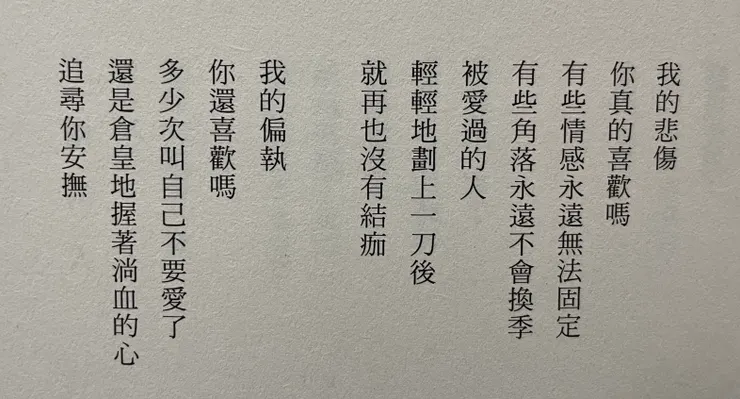 我的悲傷
你真的喜歡嗎
有些情感永遠無法固定
有些角落永遠不會換季
被愛過的人
輕輕地劃上一刀後
就再也沒有結痂
我的偏執
你還喜歡嗎
多少次叫自己不要愛了
還是倉皇地握著淌血的心
追尋你安撫